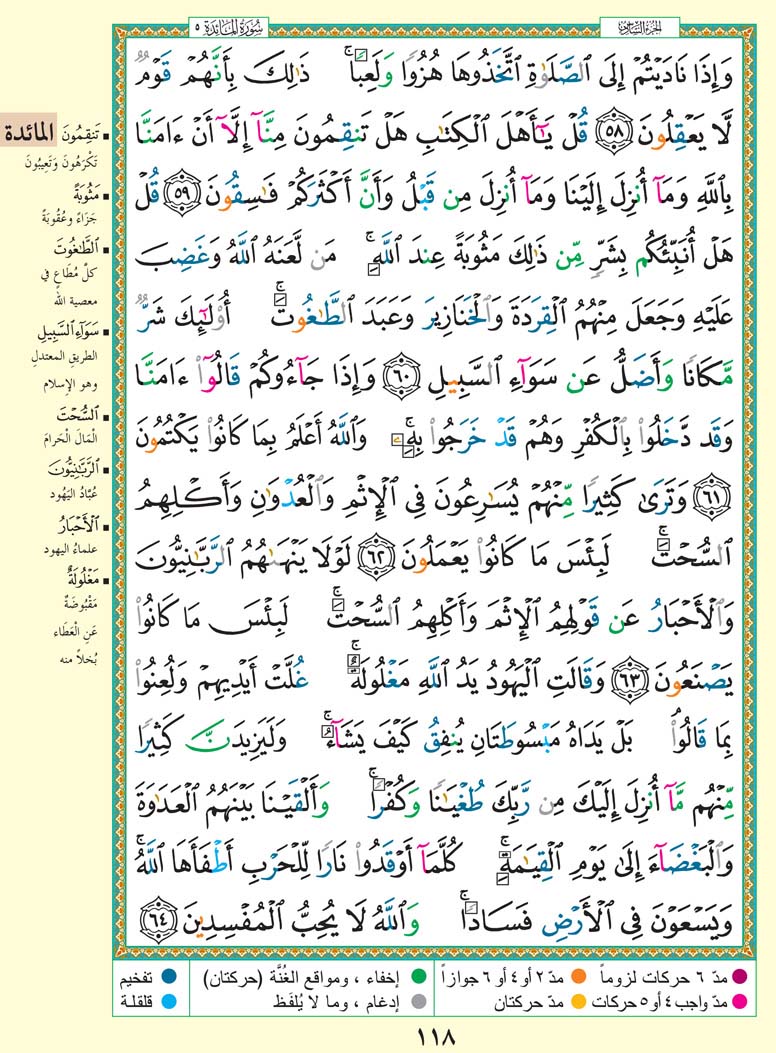 سُورَةُ المَائدَة ٥
الجزء السادس
وَإِذَا نَادَيْتُمْ إِلَى ٱلصَّلَوٰةِ ٱتَّخَذُوهَا هُزُوًا وَلَعِبًا ۚ ذَٰلِكَ بِأَنَّهُمْ قَوْمٌ
لَّا يَعْقِلُونَ ٥٨ قُلْ يَـٰٓأَهْلَ ٱلْكِتَـٰبِ هَلْ تَنقِمُونَ مِنَّآ إِلَّآ أَنْ ءَامَنَّا
بِٱللَّهِ وَمَآ أُنزِلَ إِلَيْنَا وَمَآ أُنزِلَ مِن قَبْلُ وَأَنَّ أَكْثَرَكُمْ فَـٰسِقُونَ ٥٩ قُلْ
هَلْ أُنَبِّئُكُم بِشَرٍّ مِّن ذَٰلِكَ مَثُوبَةً عِندَ ٱللَّهِ ۚ مَن لَّعَنَهُ ٱللَّهُ وَغَضِبَ
عَلَيْهِ وَجَعَلَ مِنْهُمُ ٱلْقِرَدَةَ وَٱلْخَنَازِيرَ وَعَبَدَ ٱلطَّـٰغُوتَ ۚ أُو۟لَـٰٓئِكَ شَرٌّ
مَّكَانًا وَأَضَلُّ عَن سَوَآءِ ٱلسَّبِيلِ ٦٠ وَإِذَا جَآءُوكُمْ قَالُوٓا۟ ءَامَنَّا
وَقَد دَّخَلُوا۟ بِٱلْكُفْرِ وَهُمْ قَدْ خَرَجُوا۟ بِهِۦ ۚ وَٱللَّهُ أَعْلَمُ بِمَا كَانُوا۟ يَكْتُمُونَ
٦١ وَتَرَىٰ كَثِيرًا مِّنْهُمْ يُسَـٰرِعُونَ فِى ٱلْإِثْمِ وَٱلْعُدْوَٰنِ وَأَكْلِهِمُ
ٱلسُّحْتَ ۚ لَبِئْسَ مَا كَانُوا۟ يَعْمَلُونَ ٦٢ لَوْلَا يَنْهَىٰهُمُ ٱلرَّبَّـٰنِيُّونَ
وَٱلْأَحْبَارُ عَن قَوْلِهِمُ ٱلْإِثْمَ وَأَكْلِهِمُ ٱلسُّحْتَ ۚ لَبِئْسَ مَا كَانُوا۟
يَصْنَعُونَ ٦٣ وَقَالَتِ ٱلْيَهُودُ يَدُ ٱللَّهِ مَغْلُولَةٌ ۚ غُلَّتْ أَيْدِيهِمْ وَلُعِنُوا۟
بِمَا قَالُوا۟ ۘ بَلْ يَدَاهُ مَبْسُوطَتَانِ يُنفِقُ كَيْفَ يَشَآءُ ۚ وَلَيَزِيدَنَّ كَثِيرًا
مِّنْهُم مَّآ أُنزِلَ إِلَيْكَ مِن رَّبِّكَ طُغْيَـٰنًا وَكُفْرًا ۚ وَأَلْقَيْنَا بَيْنَهُمُ ٱلْعَدَٰوَةَ
وَٱلْبَغْضَآءَ إِلَىٰ يَوْمِ ٱلْقِيَـٰمَةِ ۚ كُلَّمَآ أَوْقَدُوا۟ نَارًا لِّلْحَرْبِ أَطْفَأَهَا ٱللَّهُ ۚ
وَيَسْعَوْنَ فِى ٱلْأَرْضِ فَسَادًا ۚ وَٱللَّهُ لَا يُحِبُّ ٱلْمُفْسِدِينَ ٦٤
المائدة
تَنقِمُونَ
تَكْرَهُونَ وَتَعِيبُونَ
مَثُوبَةً
جَزَاءً وعُقُوبَةً
ٱلطَّـٰغُوتَ
كلّ مُطَاعٍ في
معصية الله
سَوَآءِ ٱلسَّبِيلِ
الطريقِ المعتدلِ
وهو الإسلام
ٱلسُّحْتَ
الْمَالَ الْحَرامَ
ٱلرَّبَّـٰنِيُّونَ
عُبَّادُ اليَهُود
ٱلْأَحْبَارُ
علماءُ اليهود
مَغْلُولَةٌ
مَقْبُوضَةٌ
عَنِ الْعَطَاء
بُخلاً منه
مدّ ٦ حركات لزوماً
مدّ ٢ أو ٤ أو ٦ جوازاً
إخفاء ، ومواقع الغُنَّة (حركتان)
تفخيم
مدّ واجب ٤ أو ٥ حركات
مدّ حركتان
إدغام ، وما لا يُلفَظ
قلقلة
١١٨